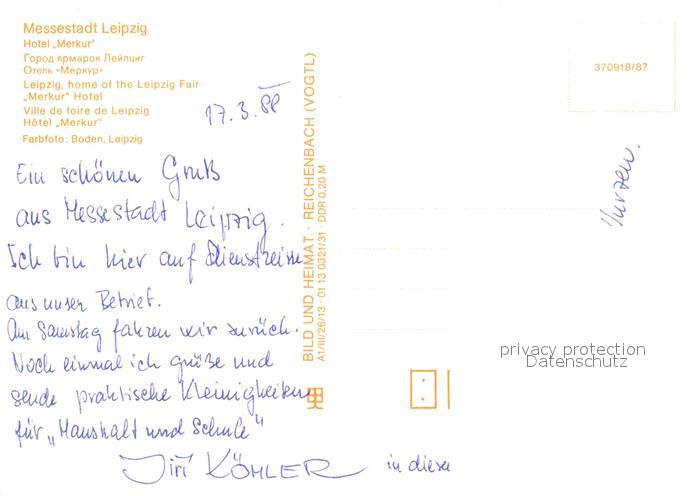 Messestadt Leipzig
Hotel „Merkur"
Город ярмарок Лейпциг
Отель «Меркур»
Leipzig, home of the Leipzig Fair
„Merkur" Hotel
Ville de foire de Leipzig
Hôtel „Merkur"
Farbfoto: Boden, Leipzig
17. 3. 88
Ein schönen Gruß
aus Messestadt Leipzig.
Ich bin hier auf Dienstreise
aus unser Betrieb.
Am Samstag fahren wir zurück.
Noch einmal ich grüße und
sende praktische Kleinigkeiten
für „Haushalt und Schule"
Jiří KÖHLER
in diese
BILD UND HEIMAT · REICHENBACH (VOGTL)
A1/III/26/13 · 01 13 0321/31 DDR 0,20 M
370918/87
privacy protection
Datenschutz